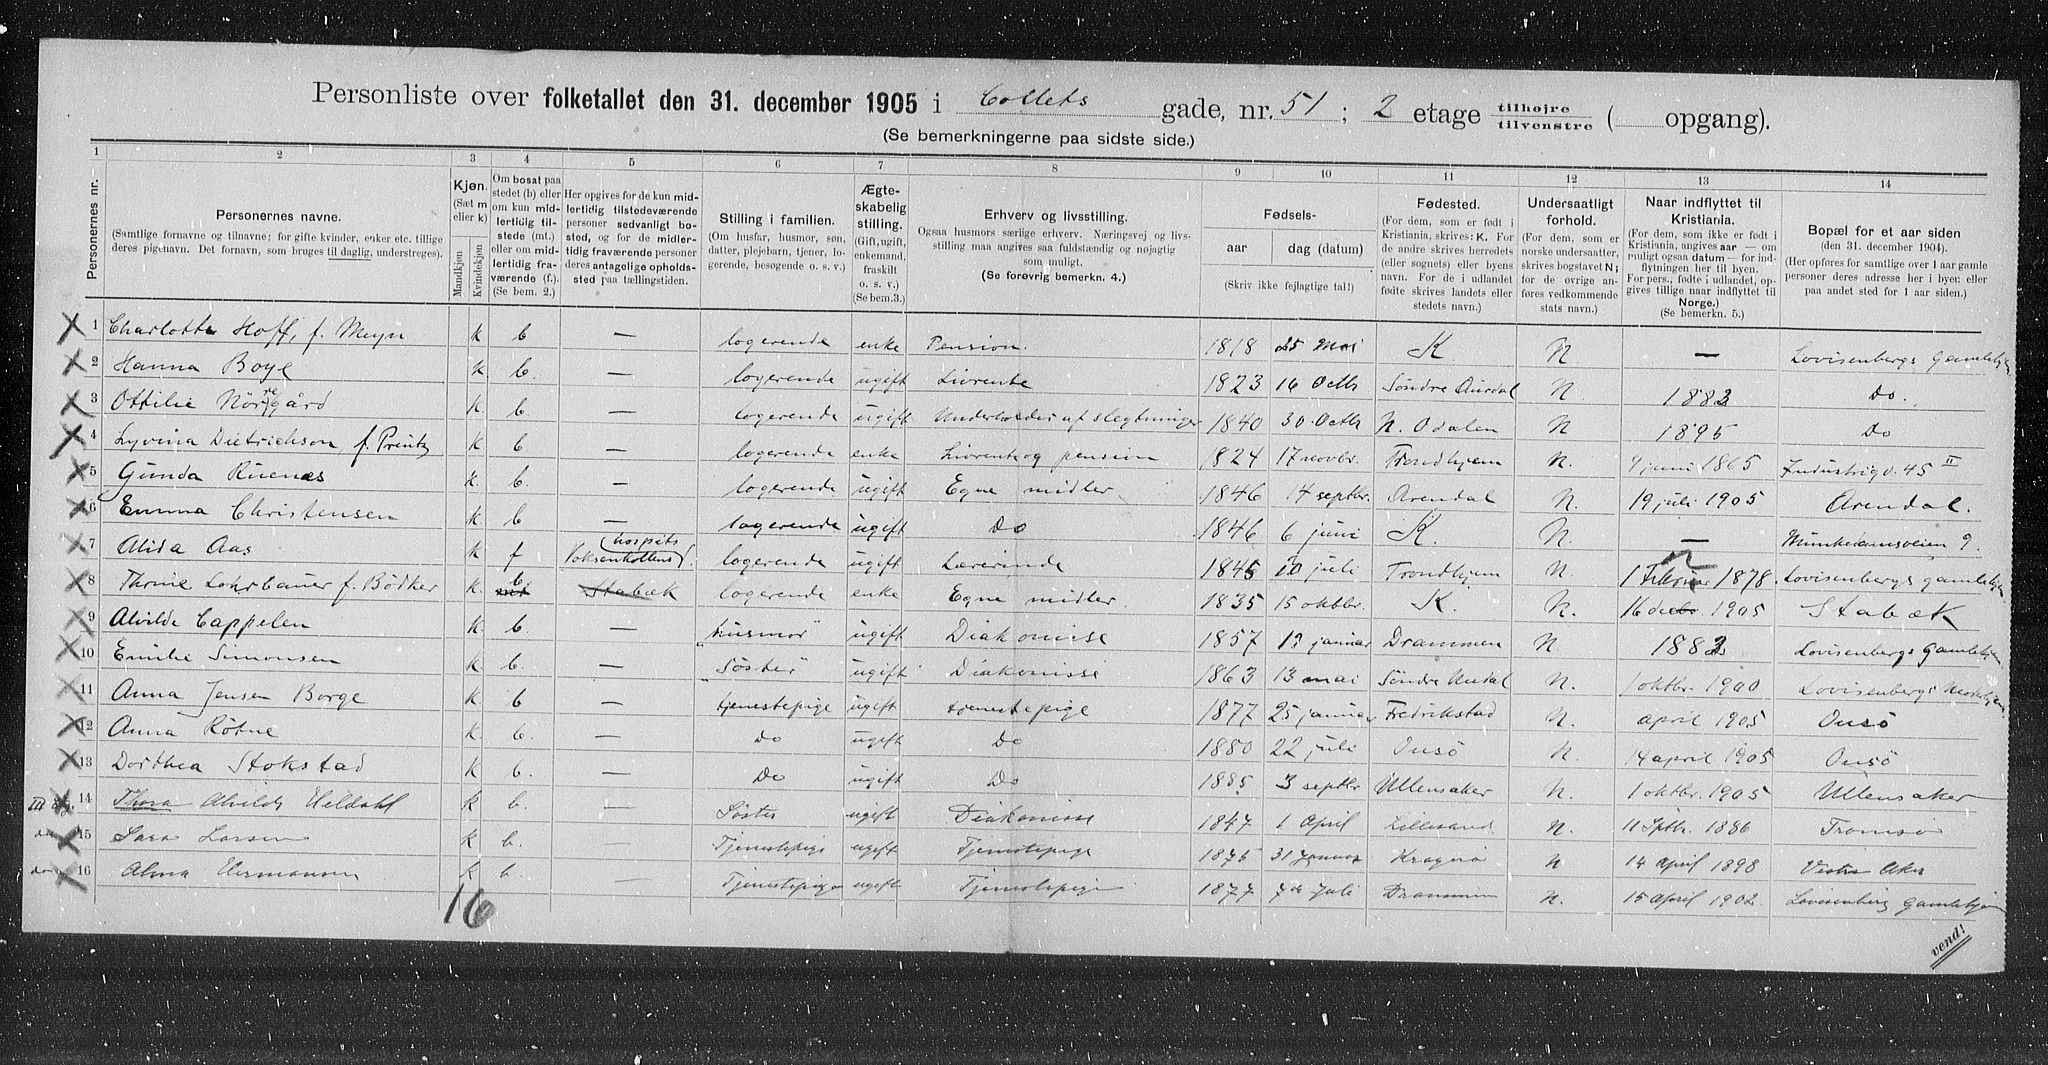 Personliste over folketallet den 31. december 1905 i Collets gade, nr. 51 ; 2 etage tilhøjre tilvenstre ( opgang).
(Se bemerkningerne paa sidste side.)
1 2 3 4 5 6 7 8 9 10 11 12 13 14
Personernes nr.
Personernes navne.
(Samtlige fornavne og tilnavne; for gifte kvinder, enker etc. tillige deres pigenavn. Det fornavn, som bruges til daglig, understreges).
Kjøn. (Sæt m eller k) Mandkjøn Kvindekjøn
Om bosat paa stedet (b) eller om kun midlertidig tilstede (mt.) eller om midlertidig fraværende (f.). (Se bem. 2.)
Her opgives for de kun midlertidig tilstedeværende personer sedvanlig bosted, og for de midlertidig fraværende personer deres antagelige opholdssted paa tællingstiden.
Stilling i familien. (Om husfar, husmor, søn, datter, plejebarn, tjener, logerende, besøgende o. s. v.)
Ægteskabelig stilling. (Gift, ugift, enkemand, fraskilt o. s. v.) (Se bem. 3.)
Erhverv og livsstilling. Ogsaa husmors særlige erhverv. Næringsvej og livsstilling maa angives saa fuldstændig og nøjagtig som muligt. (Se forøvrig bemerkn. 4.)
Fødsels- aar dag (datum) (Skriv ikke fejlagtige tal!)
Fødested. (For dem, som er født i Kristiania, skrives: K. For de andre skrives herredets (eller sognets) eller byens navn. For de i udlandet fødte skrives landets eller stedets navn.)
Undersaatligt forhold. (For dem, som er norske undersaatter, skrives bogstavet N; for de øvrige anføres vedkommende stats navn.)
Naar indflyttet til Kristiania. (For dem, som ikke er født i Kristiania, angives aar — om muligt ogsaa datum — for indflytningen her til byen. For pers., fødte i udlandet, opgives tillige naar indflyttet til Norge.) (Se bemerkn. 5.)
Bopæl for et aar siden (den 31. december 1904). (Her opføres for samtlige over 1 aar gamle personer deres adresse her i byen eller paa andet sted for 1 aar siden.)
1 Charlotte Hoff, f. Meyn k b — logerende enke Pension. 1818 25 Mai K. N — Lovisenbergs Gamlehjem
2 Hanna Boye k b. — logerende ugift Livrente 1823 16 Octb Søndre Aurdal N 1883 Do.
3 Ottilie Nørregård k. b. — logerende ugift Underholdes af slegtninger 1840 30 Octb N. Odalen N 1895 Do
4 Lyvina Dietrichson f. Preutz k b — logerende enke Livrente og pension 1824 17 novbr. Trondhjem N. 9 juni 1865 Industrigd. 45 II
5 Gunda Ruenæs k. b. — logerende ugift Egne midler 1846 14 septbr. Arendal N. 19 juli 1905 Arendal.
6 Emma Christensen k. b — logerende ugift Do 1846 6 juni K. N. — Munkedamsveien 9.
7 Alida Aas k f Voksenkollens hospits logerende ugift Lærerinde 1845 10 juli Trondhjem N. 1 Februar 1878. Lovisenbergs gamlehjem
8 Thrine Lohrbauer f. Bødker k. b mt Stabæk logerende enke Egne midler. 1835 15 oktbr. K. N. 16 decbr 1905 Stabæk
9 Alvilde Cappelen k. b. — "husmor" ugift Diakonisse 1857 13 januar Drammen N 1883 Lovisenbergs Gamlehjem
10 Emilie Simonsen k b. — "Søster" ugift Diakonisse 1863 13 mai Søndre Undal N. 1 oktbr. 1900 Lovisenbergs
11 Anna Jensen Borge k. b — tjenestepige ugift tjenestepige 1877 25 januar Fredrikstad N. april 1905 Onsö
12 Anna Rötne k b. — Do ugift Do 1880 22 juli Onsö N. 14 april 1905 Onsö
13 Dorthea Stokstad k b. — Do ugift Do 1885 3 septbr Ullensaker N. 1 oktbr. 1905 Ullensaker
III Etg. 14 Thora Alvilde Heldahl k b. — Søster ugift Diakonisse 1847 1 April Lillesand N. 11 Sptbr. 1886 Tromsø
do 15 Sara Larsen k b. — Tjenestepige ugift Tjenestepige 1875 31 Januar Kragerø N 14 april 1898 Vestre Aker
do 16 Alma Hermansen k b. — Tjenestepige ugift Tjenestepige 1877 7de Juli Drammen N. 15 April 1902 Lovisenberg Gamlehjem
16
vend!